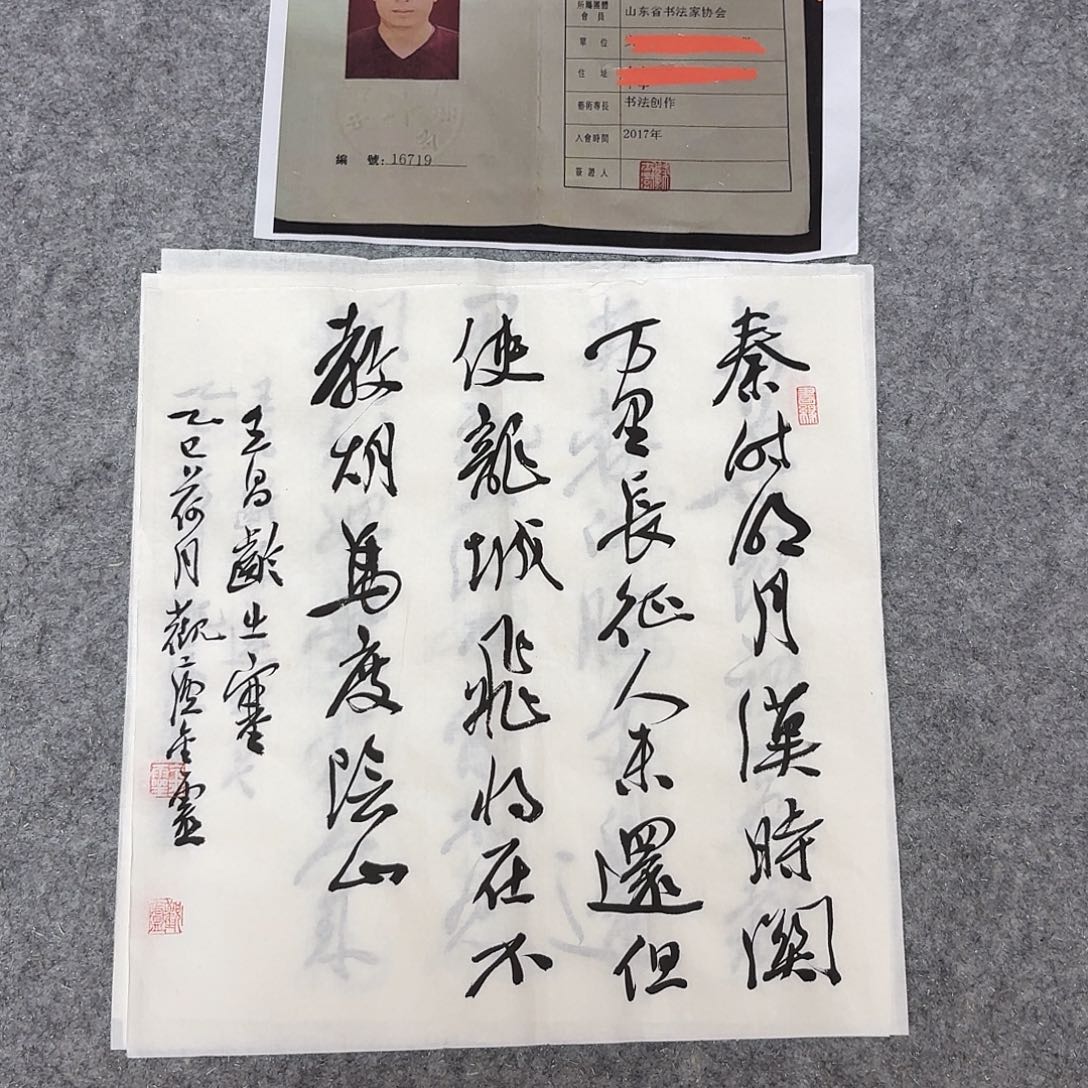 所屬團體會員 山东省书法家协会
單位
住址
藝術專長 书法创作
入會時間 2017年
簽證人
編號:16719
秦时明月漢時關
万里長征人未還但
使龍城飛将在不
教胡馬度陰山
王昌齡出塞
乙巳荷月觀
書緣